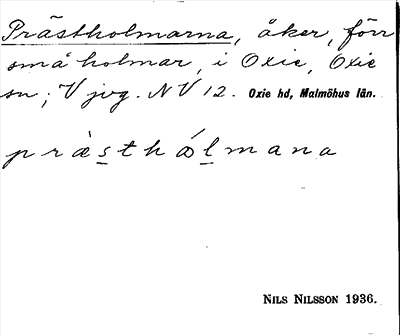 Prästholmarna, åker, förr
små holmar, i Oxie, Oxie
sn; V jvg. NV 12. Oxie hd, Malmöhus län.
præsthólmana
NILS NILSSON 1936.